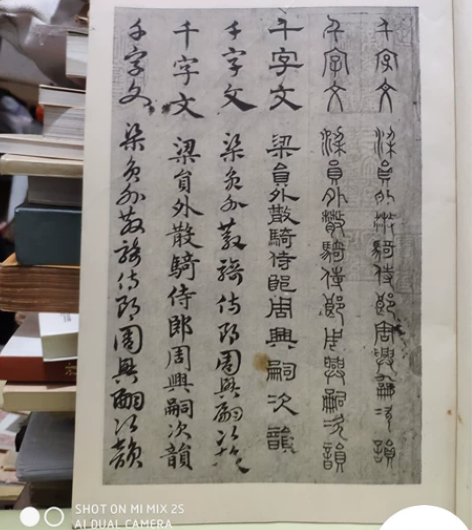 千字文 梁員外散騎侍郎周興嗣次韻
千字文 梁員外散騎侍郎周興嗣次韻
千字文 梁員外散騎侍郎周興嗣次韻
千字文 梁員外散騎侍郎周興嗣次韻
千字文 梁員外散騎侍郎周興嗣次韻
千字文 梁員外散騎侍郎周興嗣次韻
SHOT ON MI MIX 2S
AI DUAL CAMERA